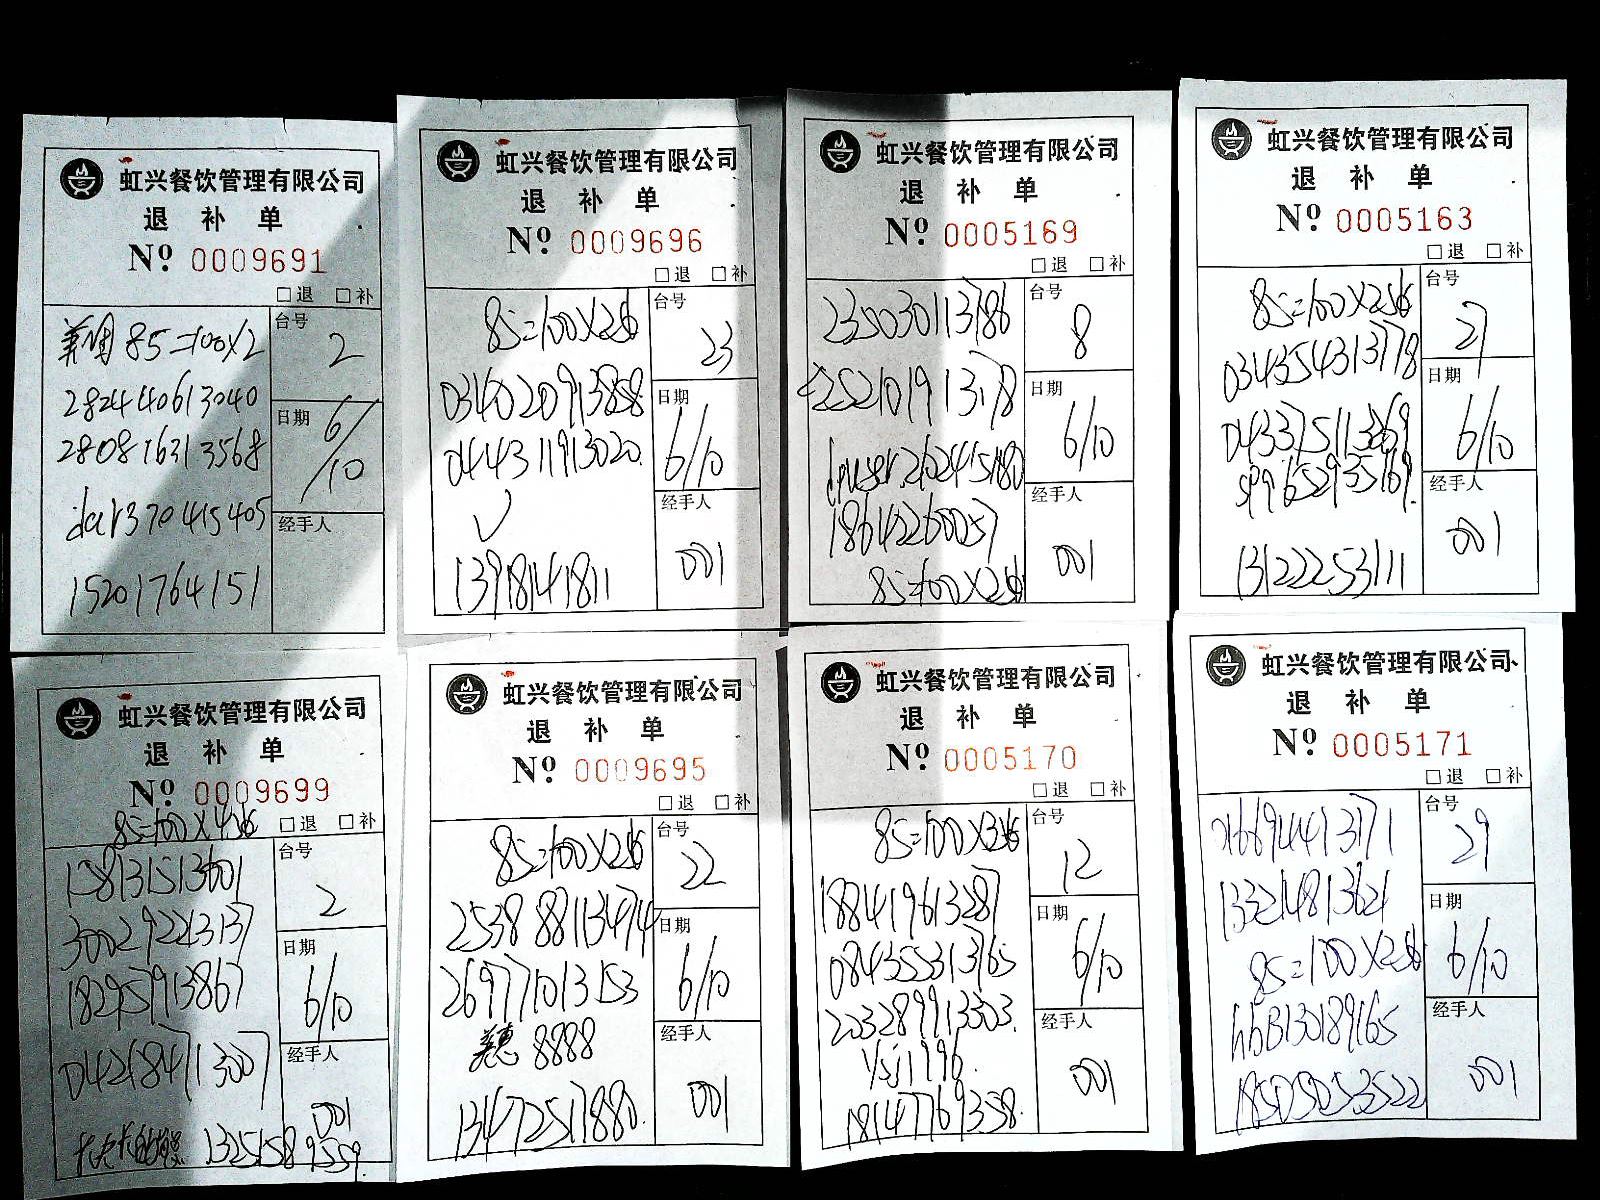 虹兴餐饮管理有限公司
退 补 单
Nº 0009691
□退 □补
美团 85=100×2
2824440613040
280816313568
dar370415405
15201764151
台号
2
日期
6/10
经手人
虹兴餐饮管理有限公司
退 补 单
Nº 0009696
□退 □补
85=100×2
034020913858
0444311913020
1391814 1811
台号
23
日期
6/10
经手人
001
虹兴餐饮管理有限公司
退 补 单
Nº 0005169
□退 □补
235030113786
252101913178
186142260057
85=100×2
台号
8
日期
6/10
经手人
001
虹兴餐饮管理有限公司
退 补 单
Nº 0005163
□退 □补
85=100×2
0343554313778
13122253111
台号
27
日期
6/10
经手人
001
虹兴餐饮管理有限公司
退 补 单
Nº 0009699
□退 □补
85=100×4
158131513601
3002922313137
182957913867
0426847113007
13251589559
台号
2
日期
6/10
经手人
001
虹兴餐饮管理有限公司
退 补 单
Nº 0009695
□退 □补
85=100×2
2538881134974
269771013153
8888
13472517880
台号
22
日期
6/10
经手人
001
虹兴餐饮管理有限公司
退 补 单
Nº 0005170
□退 □补
85=100×3
188419613287
084355313765
223289913303
ysj1996
18147769358
台号
12
日期
6/10
经手人
001
虹兴餐饮管理有限公司
退 补 单
Nº 0005171
□退 □补
0166944913171
133214813621
85=100×2
hbB130189165
18503053522
台号
29
日期
6/10
经手人
001